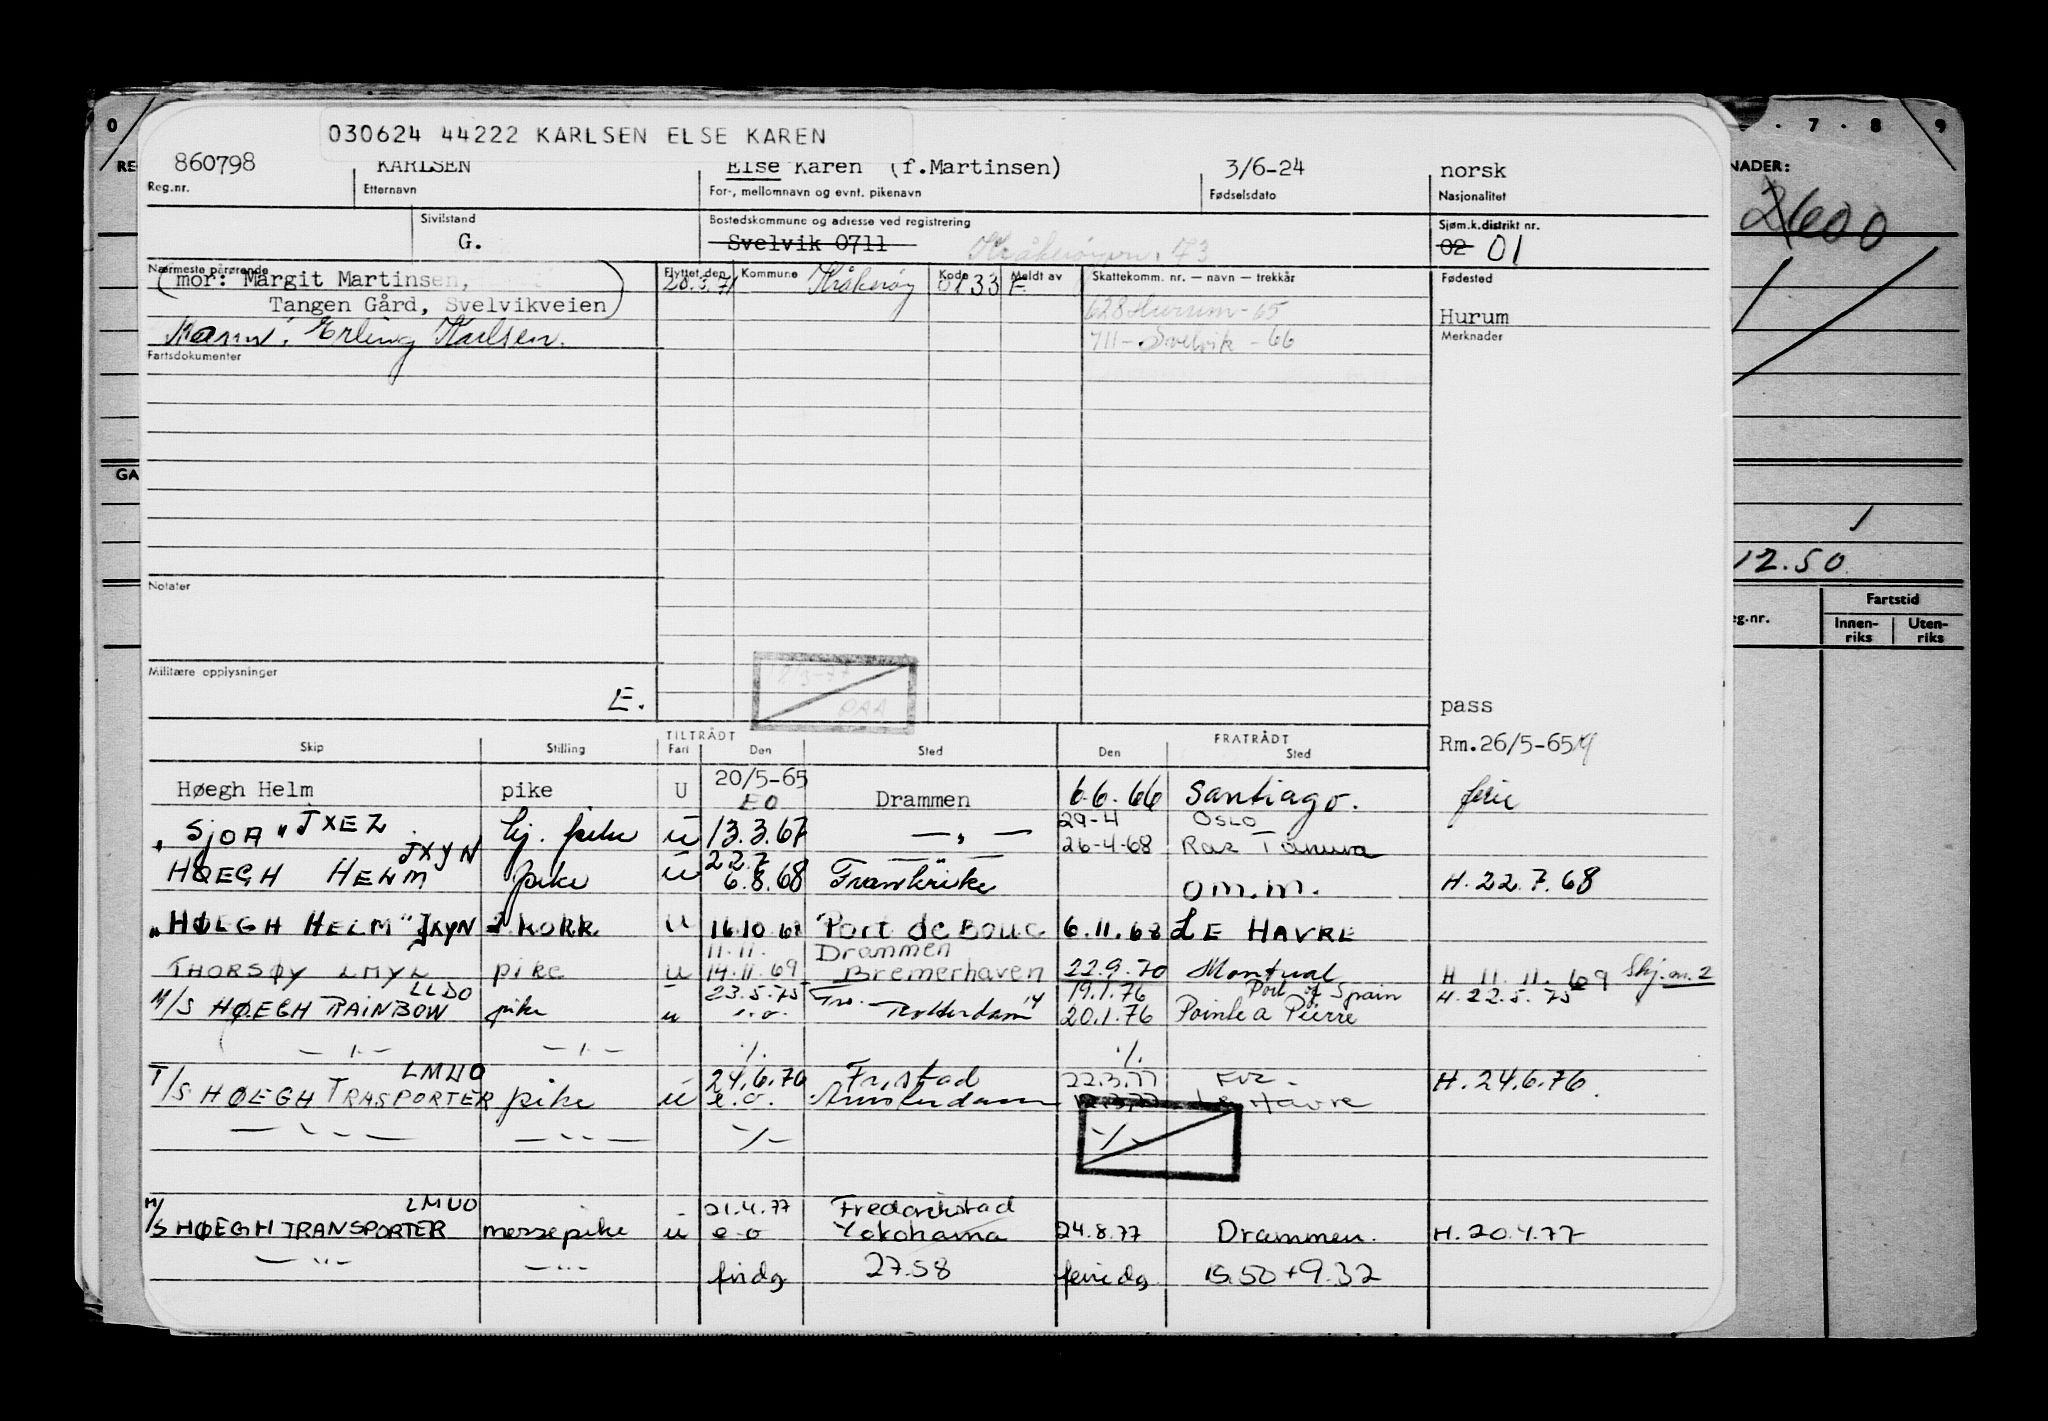 030624 44222 KARLSEN ELSE KAREN
860798 KARLSEN Else Karen (f.Martinsen) 3/6-24 norsk
Reg.nr. Etternavn For-, mellomnavn og evnt. pikenavn Fødselsdato Nasjonalitet
Sivilstand Bostedskommune og adresse ved registrering Sjøm.k.distrikt nr.
G. Svelvik 0711 73 02 01
Nærmeste pårørende Flyttet den Kommune Kode Meldt av Skattekomm. nr. — navn — trekkår Fødested
(mor: Margit Martinsen, 20.3.71 Kråkerøy 0133 E
Tangen Gård, Svelvikveien) 628 Hurum - 65 Hurum
Erling Karlsen. 711 - Svelvik - 66 Merknader
Fartsdokumenter
Notater
Militære opplysninger
E. pass
TILTRÅDT FRATRÅDT
Skip Stilling Fart Den Sted Den Sted Rm.26/5-65
Høegh Helm pike U 20/5-65 EO Drammen 6.6.66 Santiago. ferie
"SJOA" JXEZ pike u 13.3.67 — " — 29-4 OSLO
26-4-68 Ras Tanura
HØEGH HELM JXYN pike u 22.7 6.8.68 Frankrike om.m. H.22.7.68
"HØEGH HELM" JXYN KORR u 16.10.68 Port de Bouc 6.11.68 LE HAVRE
11.11. Drammen
THORSØY LMYL pike u 14.11.69 Bremerhaven 22.9.70 Montreal H 11.11.69 Skj.m.2
LLDO 23.5.75 19.1.76 Port of Spain H.22.5.75
M/S HØEGH RAINBOW pike u e.o. Rotterdam 20.1.76 Pointe a Pierre
— " — — " — ./. ./.
LMUO 24.6.76 Fr.stad 22.3.77
T/S HØEGH TRASPORTER pike u e.o. Amsterdam Le Havre H.24.6.76.
— " — — " — -/- -/-
LMUO 21.4.77 Frederikstad
M/S HØEGH TRANSPORTER messepike u e.o Yokohama 24.8.77 Drammen. H.20.4.77
— " — — " — 27.58 feriedg 15.50+9.32
0 7 · 8 · 9
RE
NADER:
2600
GA
12.50
Fartstid
eg.nr. Innen-riks Uten-riks